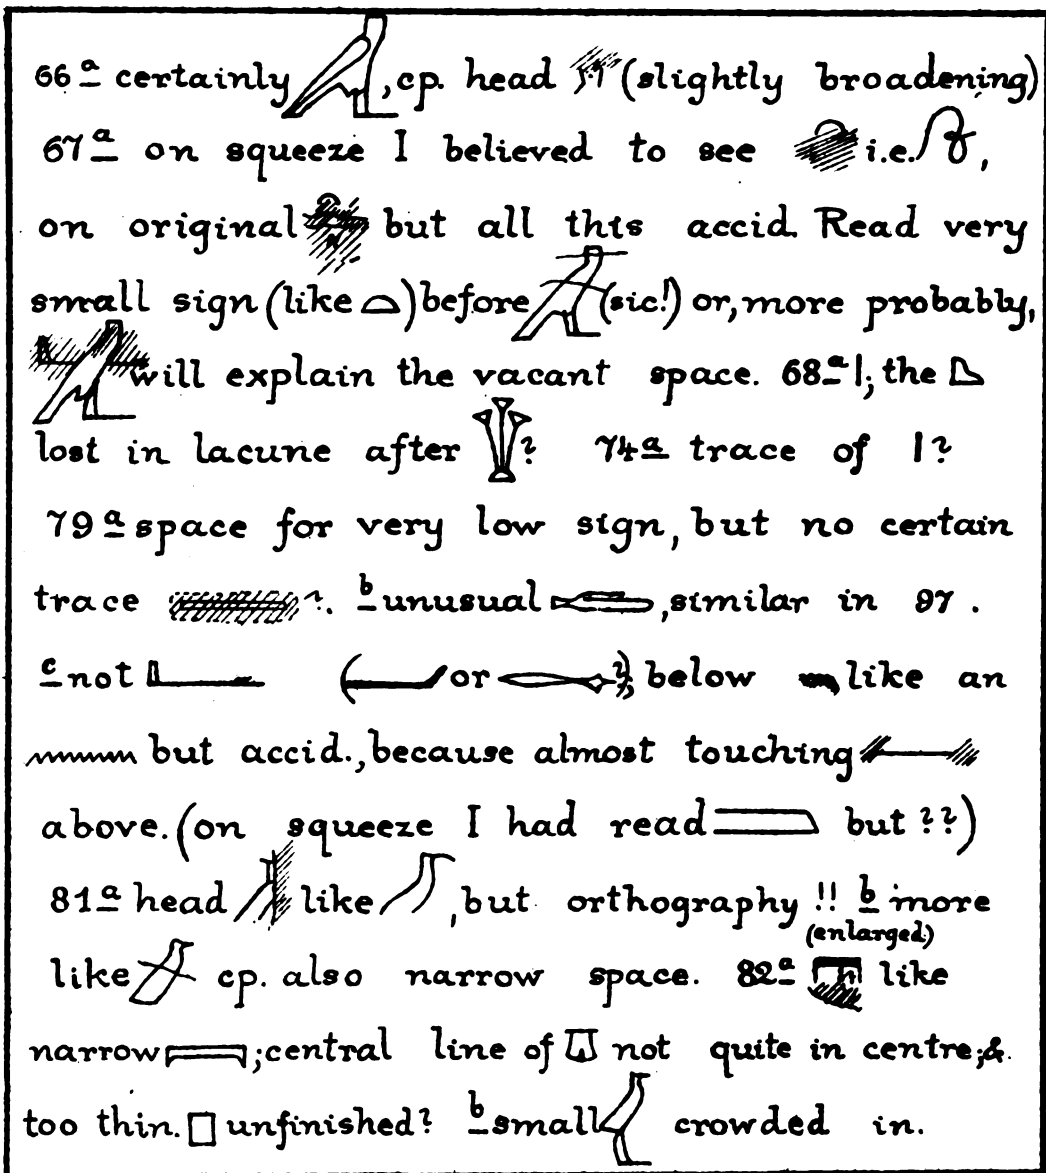 66a certainly , cp. head (slightly broadening)
67a on squeeze I believed to see i.e. ,
on original but all this accid. Read very
small sign (like ) before (sic!) or, more probably,
will explain the vacant space. 68a ; the
lost in lacune after ? 74a trace of ?
79a space for very low sign, but no certain
trace ?. b unusual , similar in 97.
c not ( or ?); below like an
but accid., because almost touching
above. (on squeeze I had read but ??)
81a head like , but orthography !! b more
(enlarged)
like cp. also narrow space. 82a like
narrow ; central line of not quite in centre; &.
too thin. unfinished? b small crowded in.